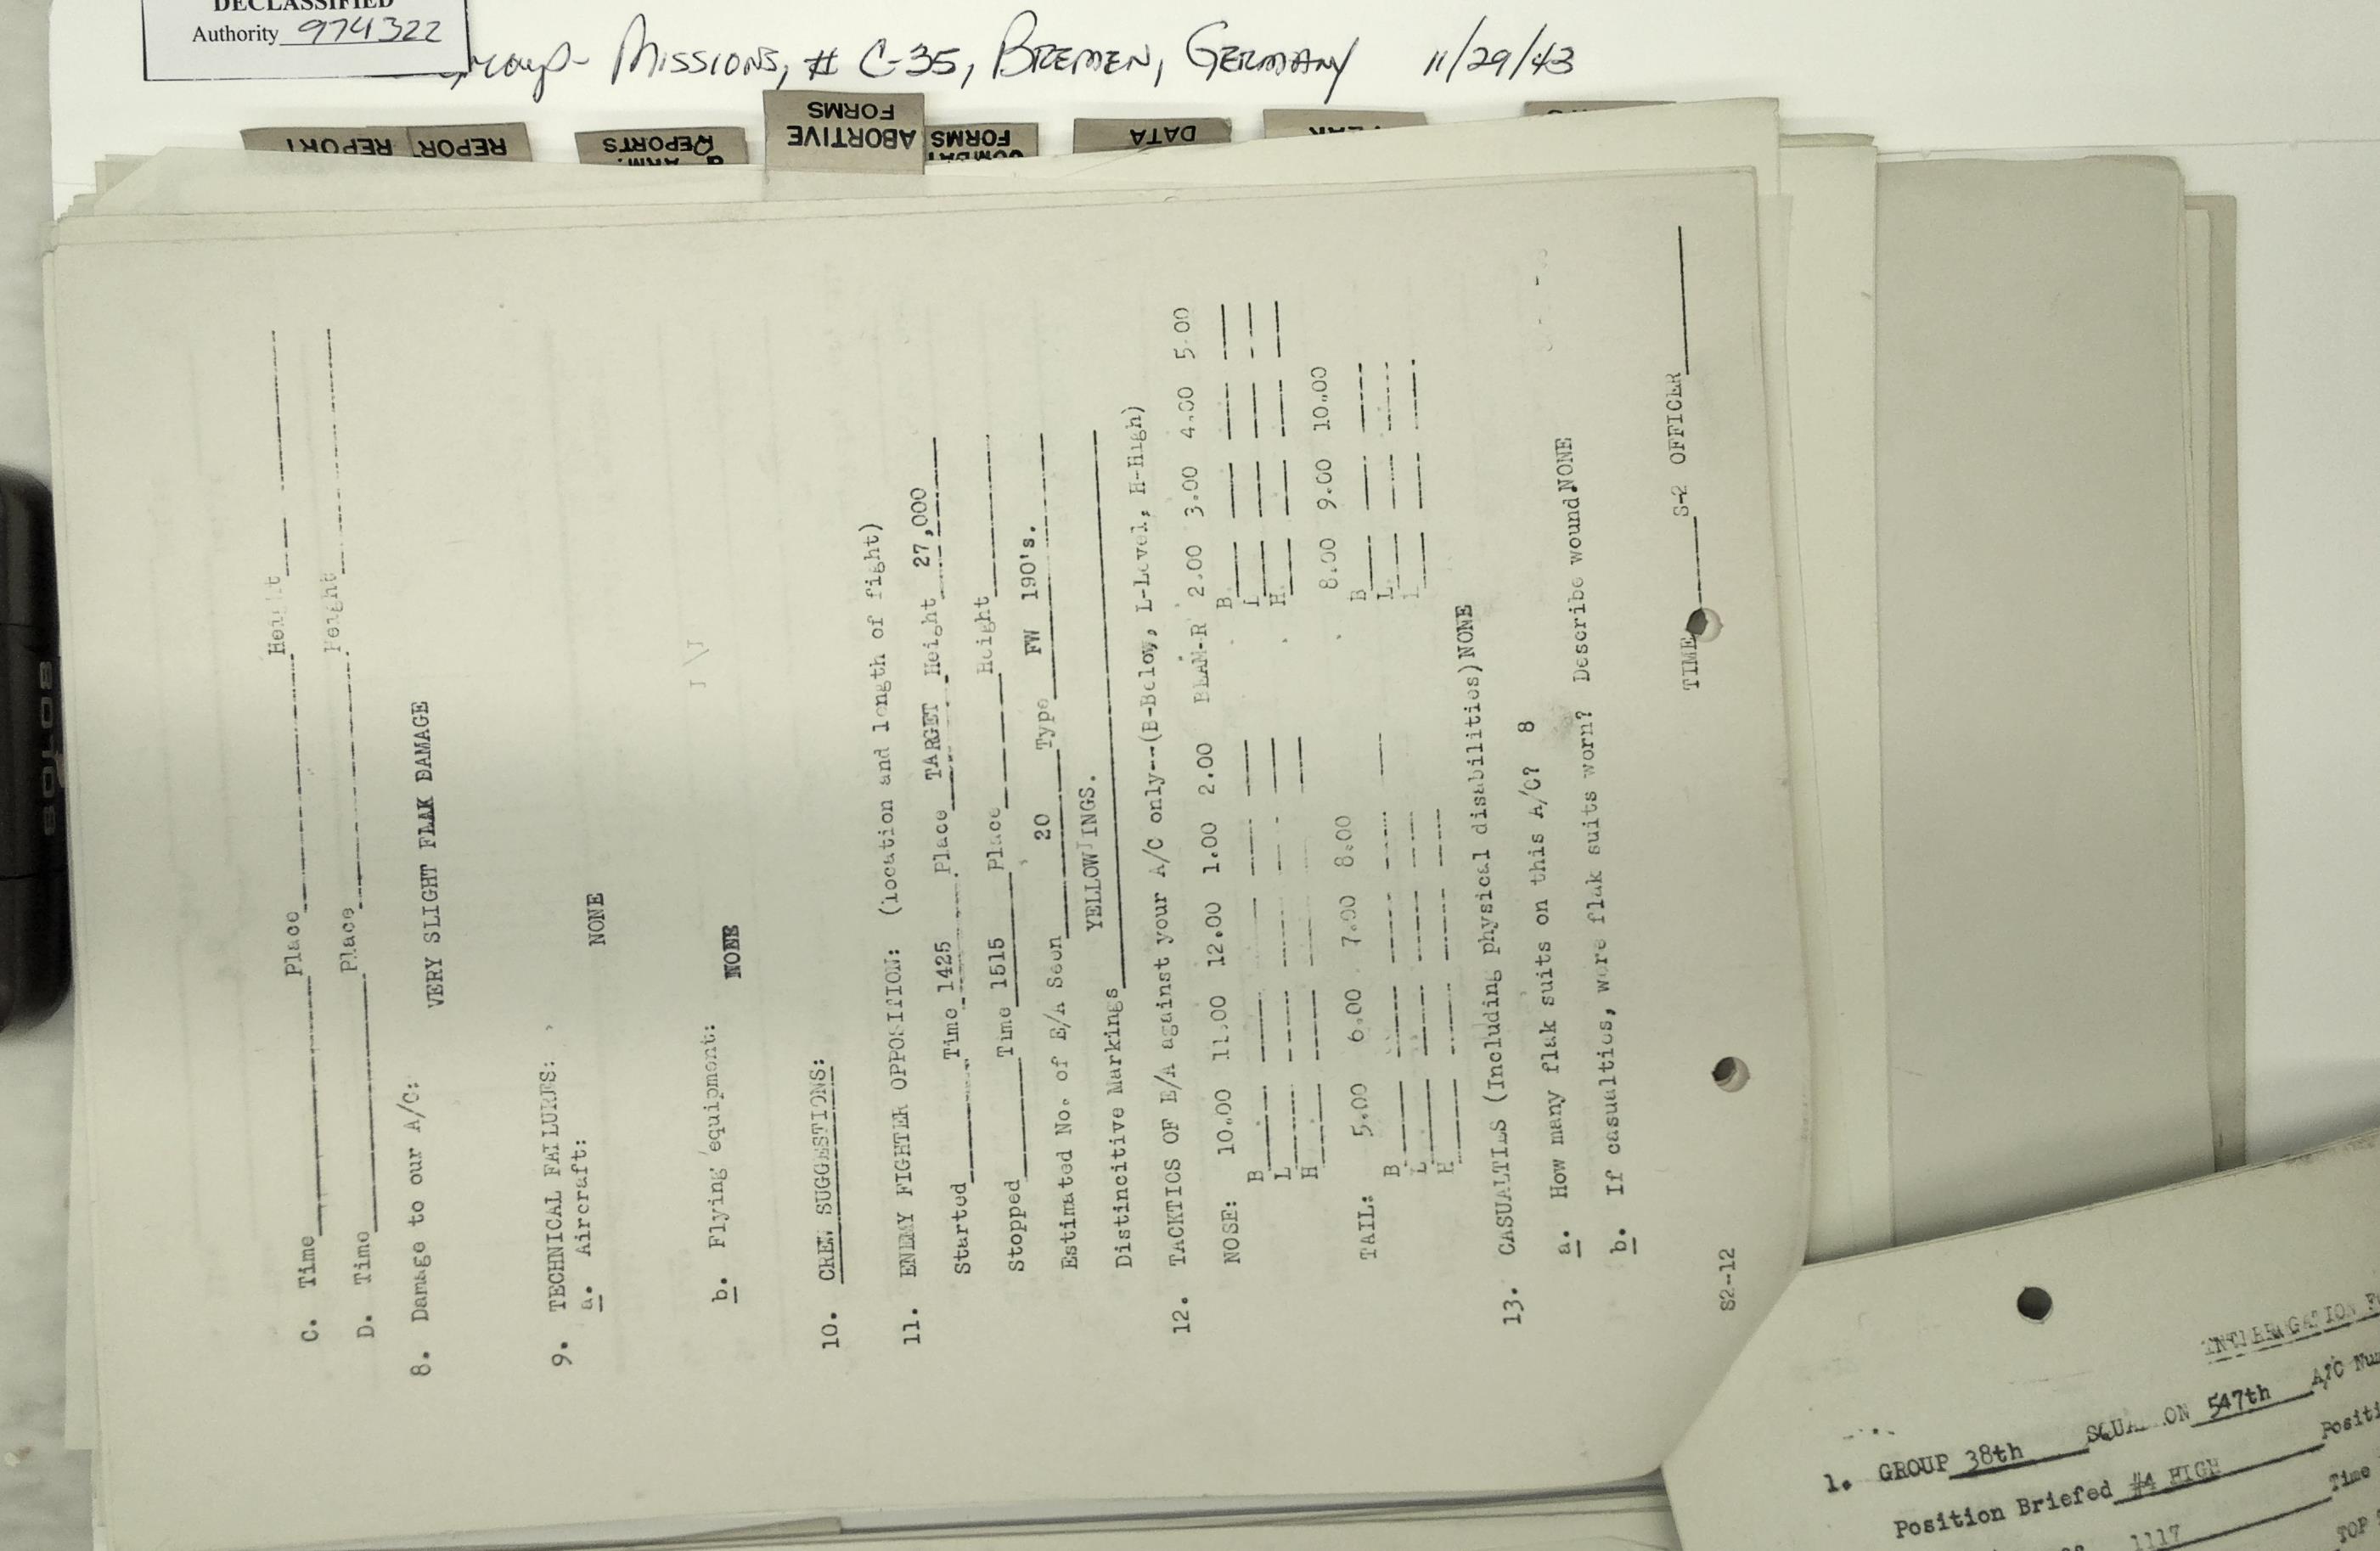 DECLASSIFIED
Authority 974322
Group- Missions, # C-35, Bremen, Germany 11/29/43
REPORT
REPORT
REPORTS
ABORTIVE
FORMS
COMBAT
FORMS
DATA
C. Time Place Height
D. Time Place Height
8. Damage to our A/C:
VERY SLIGHT FLAK DAMAGE
9. TECHNICAL FAILURES:
a. Aircraft:
NONE
b. Flying equipment:
NONE
10. CREW SUGGESTIONS:
11. ENEMY FIGHTER OPPOSITION: (location and length of fight)
Started Time 1425 Place TARGET Height 27,000
Stopped Time 1515 Place Height
Estimated No. of E/A Seen 20 Type FW 190's.
Distincitive Markings YELLOW INGS.
12. TACKTICS OF E/A against your A/C only--(B-Below, L-Level, H-High)
NOSE: 10.00 11.00 12.00 1.00 2.00 BEAM-R 2.00 3.00 4.00 5.00
B B
L L
H H
TAIL: 5.00 6.00 7.00 8.00 8.00 9.00 10.00
B B
L L
H
13. CASUALTIES (Including physical disabilities) NONE
a. How many flak suits on this A/C? 8
b. If casualties, were flak suits worn? Describe wound. NONE
TIME S-2 OFFICER
S2-12
INTERROGATION
1. GROUP 38th SQUADRON 547th A/C
Position Briefed #4 HIGH
Time
1117
TOP